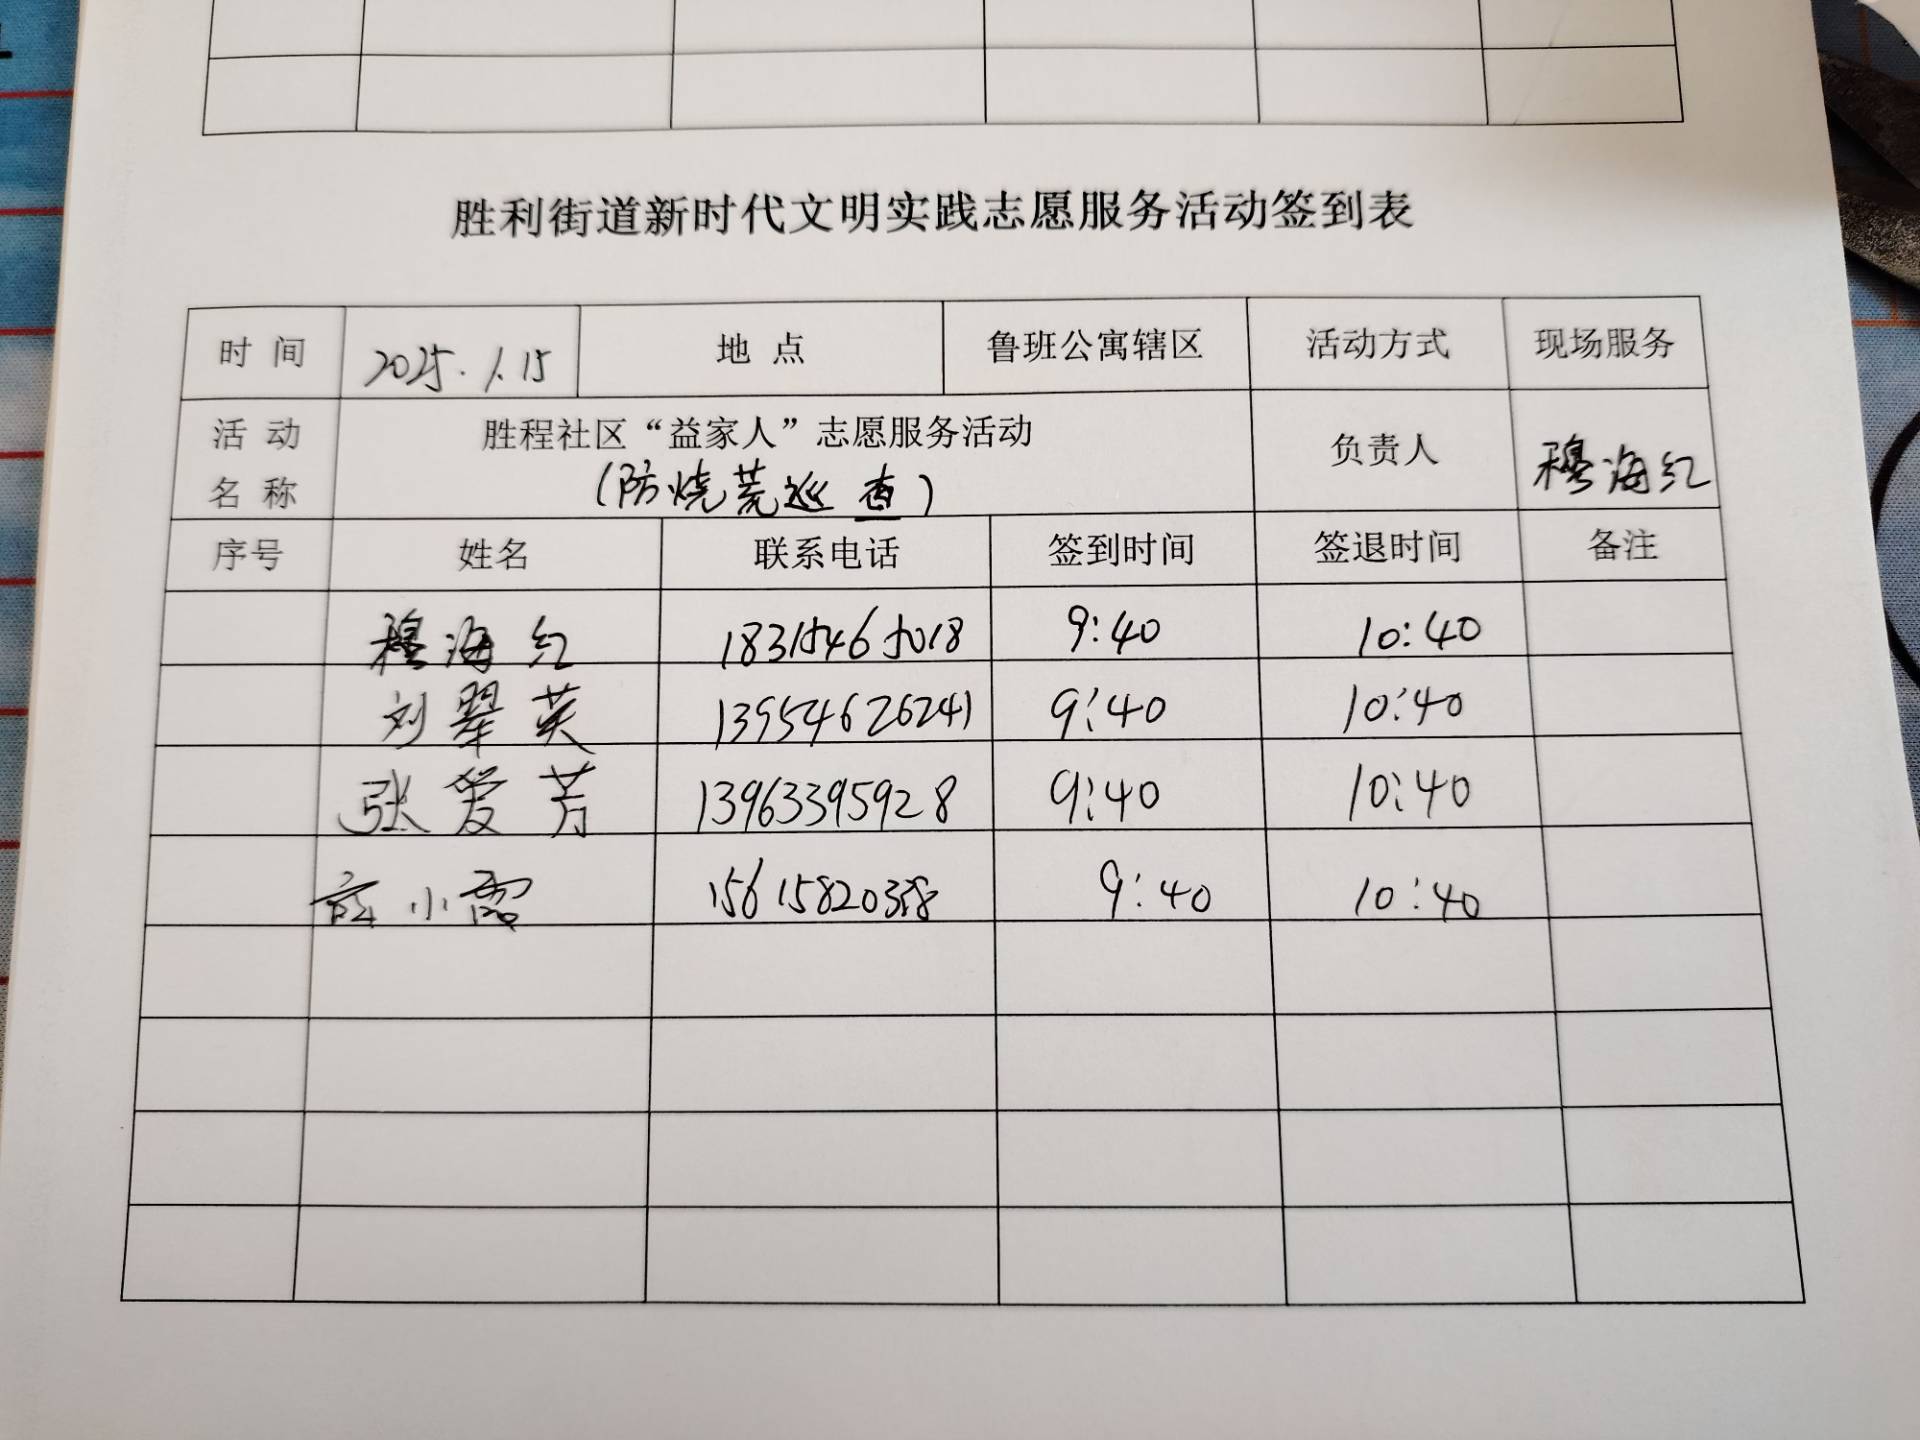 胜利街道新时代文明实践志愿服务活动签到表
时 间 2025.1.15 地 点 鲁班公寓辖区 活动方式 现场服务
活 动 名 称 胜程社区“益家人”志愿服务活动 负责人 穆海红
(防烧荒巡查)
序号 姓名 联系电话 签到时间 签退时间 备注
穆海红 18315465018 9:40 10:40
刘翠英 13954626241 9:40 10:40
张爱芳 13963395928 9:40 10:40
小霞 9:40 10:40